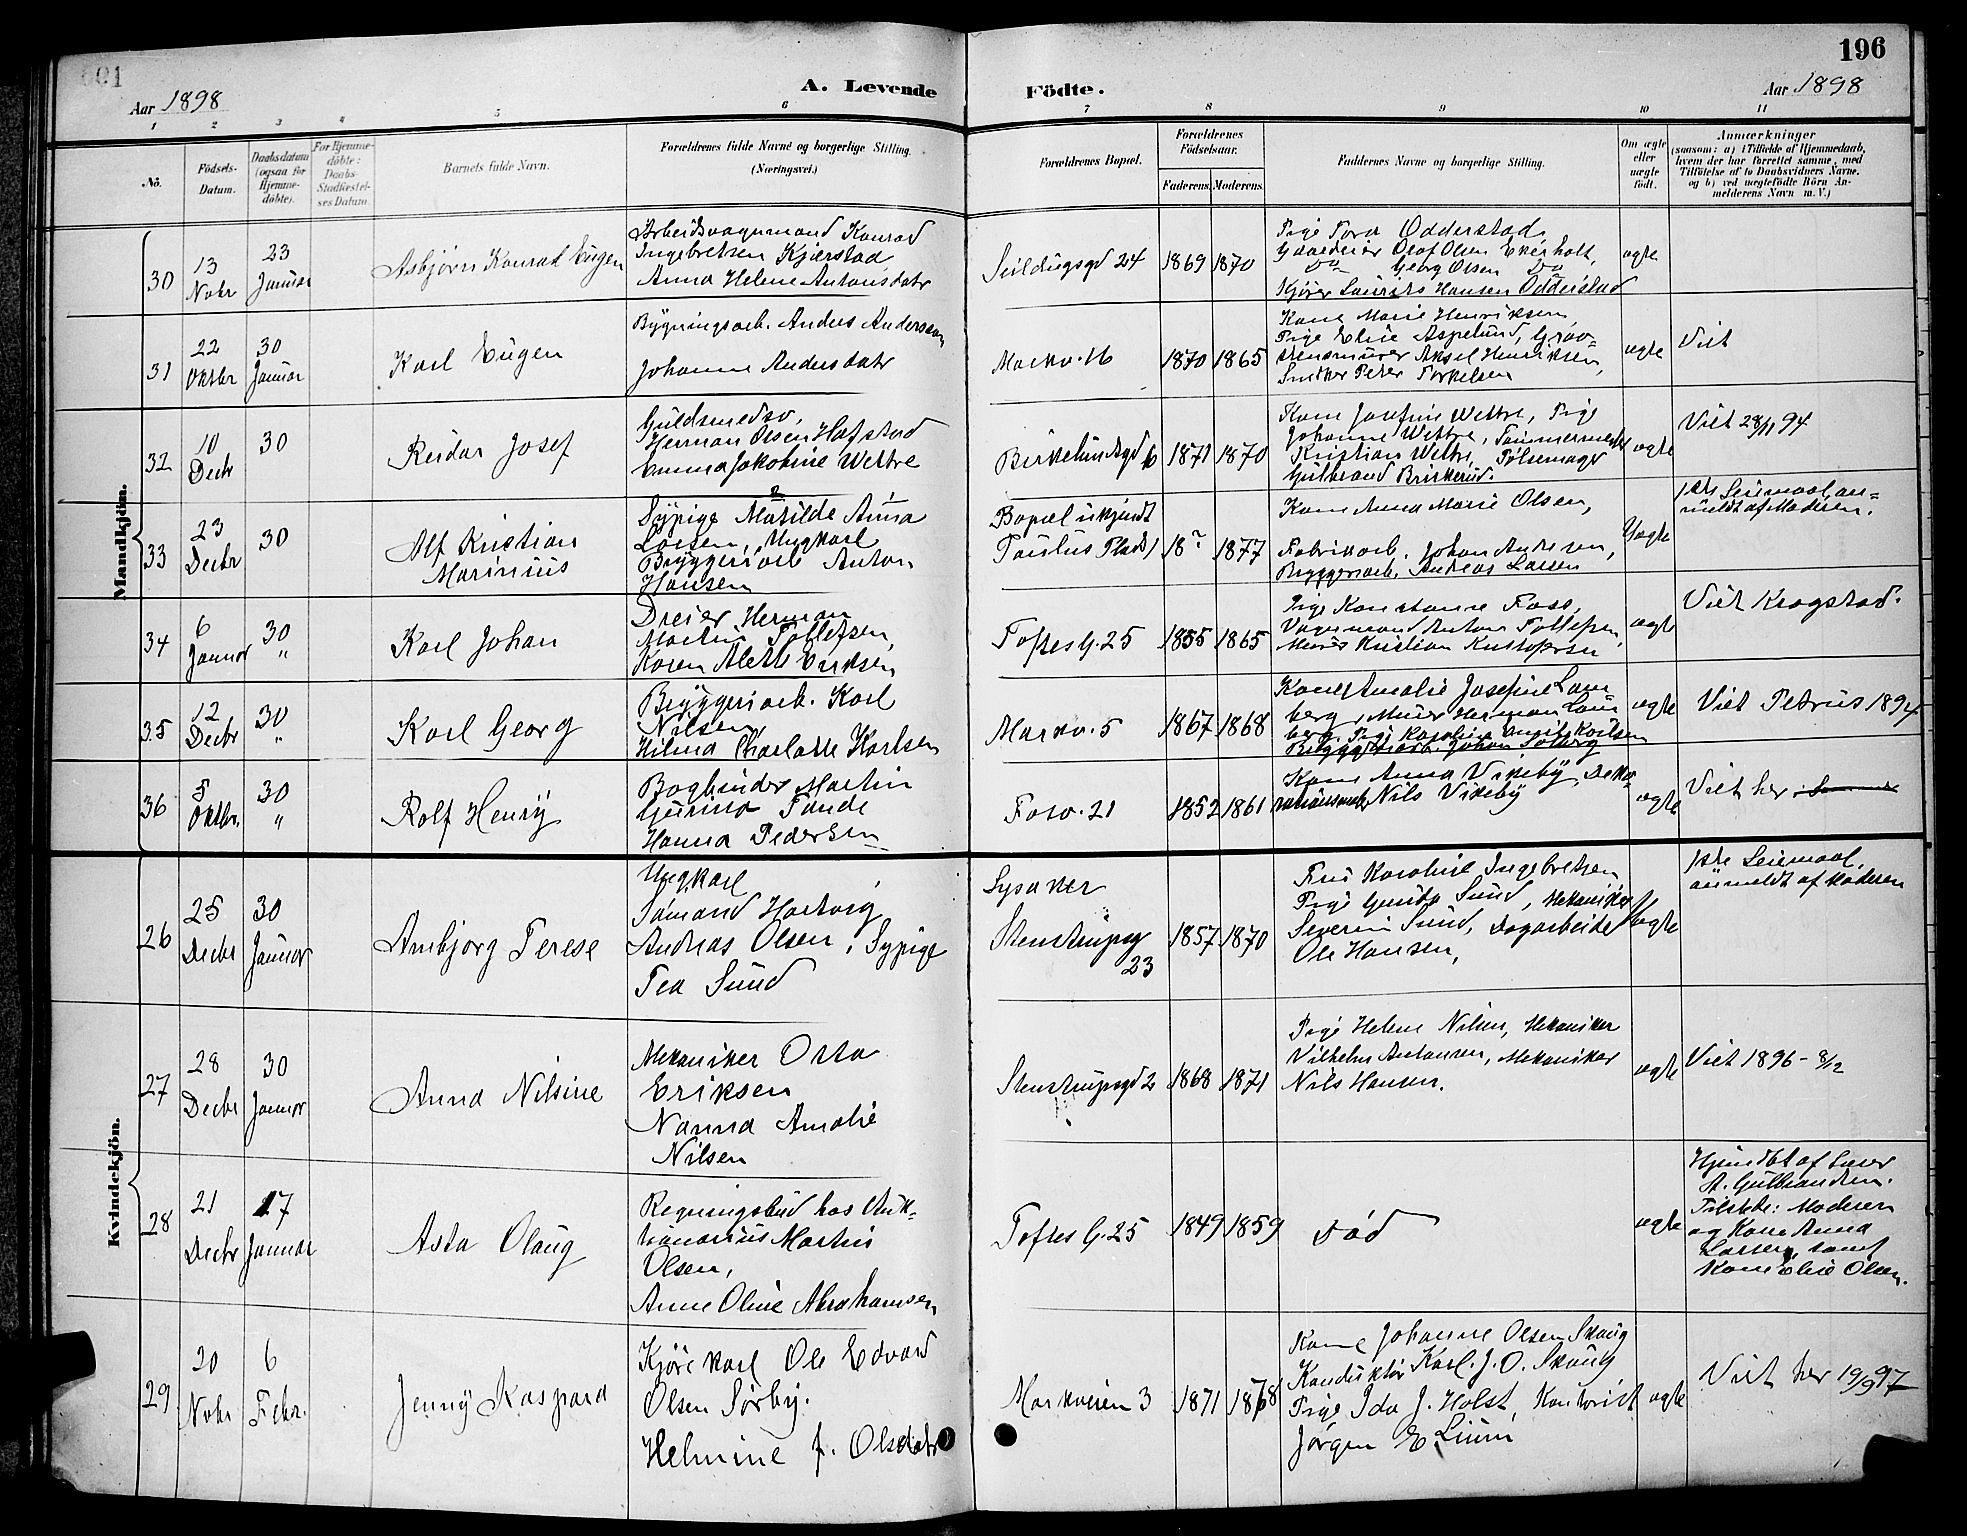 196
Aar 1898
A. Levende
Födte.
Aar 1898
1 2 3 4 5 6 7 8 9 10 11
No.
Födsels-
Datum.
Daabsdatum
(ogsaa for
Hjemme-
döbte).
For Hjemme-
döbte:
Daabs-
Stadfæstel-
ses Datum.
Barnets fulde Navn.
Forældrenes fulde Navne og borgerlige Stilling.
(Næringsvei.)
Forældrenes Bopæl.
Forældrenes
Födselsaar.
Faderens. Moderens.
Faddernes Navne og borgerlige Stilling.
Om ægte
eller
uægte
födt.
Anmærkninger
(saasom: a) i Tilfælde af Hjemmedaab,
hvem der har forrettet samme, med
Tilföielse af to Daabsvidners Navne.
og b) ved uægtefödte Börn An-
melderens Navn m. V.)
Mandkjön.
30
13
Nobr
23
Januar
Asbjørn Konrad Eugen
Arbeidsvognmand Konrad
Ingebretsen Kjierstad
Anna Helene Antonsdatr
24
1869
1870
Pige Tora Odderstad,
Gaardeier Olaf Olsen Ekerholt,
Do Georg Olsen Do
Kjører Laurits Hansen Odderstad
ægte
31
22
Oktbr
30
Januar
Karl Eugen
Bygningsarb. Anders Andersson
Johanne Andersdatr
Markv. 16
1870
1865
Kone Marie Henriksen
Pige Elise Aspelund, Grov-
stensmurer Aksel Henriksen,
Snedker Peter Torkelsen
ægte
Viet
32
10
Decbr
30
Reidar Josef
Guldsmedsv.
Herman Olsen Hafstad
Emma Jakobine Wettre
Birkelundsgd 6
1871
1870
Kone Josefine Wettre, Pige
Johanne Wettre, Tømmermester
Kristian Wettre, Pølsemager
Gulbrand Briskerud.
ægte
Viet 28/11 94
33
23
Decbr
30
Alf Kristian
Marinius
Sypige Matilde Anna
Larsen, Ungkarl
Bryggeriarb Anton
Hansen
Bopæl ukjendt
Paulus Plads 1
18?
1877
Kone Anna Marie Olsen,
Fabrikarb. Johan Andersen,
Bryggeriarb. Andreas Larsen
Uægte
1ste Leiermaal, an-
meldt af Moderen.
34
6
Januar
30
"
Karl Johan
Dreier Herman
Martin Tollefsen,
Karen Alette Eriksen
Toftes G. 25
1855
1865
Pige Konstanse Foss,
Vognmand Anton Tollefsen,
Murer Kristian Kristofersen
ægte
Viet Kragstad.
35
12
Decbr
30
"
Karl Georg
Bryggeriarb. Karl
Nilsen
Hilma Charlotte Karlsen
Markv. 5
1867
1868
Kone Amalie Josefine Lam-
berg, Murer Herman Lam
berg, Pige Karoline Karlsen
Bryggeriarb. Johan Solberg
ægte
Viet Petrus 1894
36
5
Oktbr.
30
"
Rolf Henry
Bogbinder Martin
Tande
Hanna Pedersen
Fosv. 21
1852
1861
Kone Anna Vikeby, Deko-
rationsmaler Nils Vikeby
ægte
Viet her
Kvindekjön.
26
25
Decbr
30
Januar
Ambjørg Terese
Ungkarl
Hartvig
Andreas Olsen, Sypige
Tea Sund
Lysaker
Stenstrupsg
23
1857
1870
Frue Karoline Ingebretsen
Pige Gunda Sund, Mekaniker
Severin Sund, Dagarbeider
Ole Hansen,
Uægte
1ste Leiermaal,
anmeldt af Moderen
27
28
Decbr
30
Januar
Anna Nilsine
Mekaniker Otto
Eriksen
Nanna Amalie
Nilsen
Stenstrupsgd 2
1868
1871
Pige Helene Nilsen, Mekaniker
Vilhelm Antonsen, Mekaniker
Nils Hansen.
ægte
Viet 1896 - 8/12
28
21
Decbr
17
Januar
Asta Olaug
Regningsbud hos Auk-
tionarius Martin
Olsen,
Anne Oline Abrahamsen
Toftes G. 25
1849
1859
Død
ægte
Hjemdøbt af Læser
A. Gulbrandsen.
Tilstede: Moderen
og Kone Anna
Larsen, samt
Kone Elise Olsen.
29
20
Nobr
6
Febr.
Jenny Kaspara
Kjørekarl Ole Edvard
Olsen Sørby.
Helmine f. Olsdatr
Markveien 3
1871
1878
Kone Johanne Olsen Skaug
Konduktør Karl. J. O. Skaug
Pige Ida J. Holst, Kontorist
Jørgen E Lium
ægte
Viet her 19/9 97